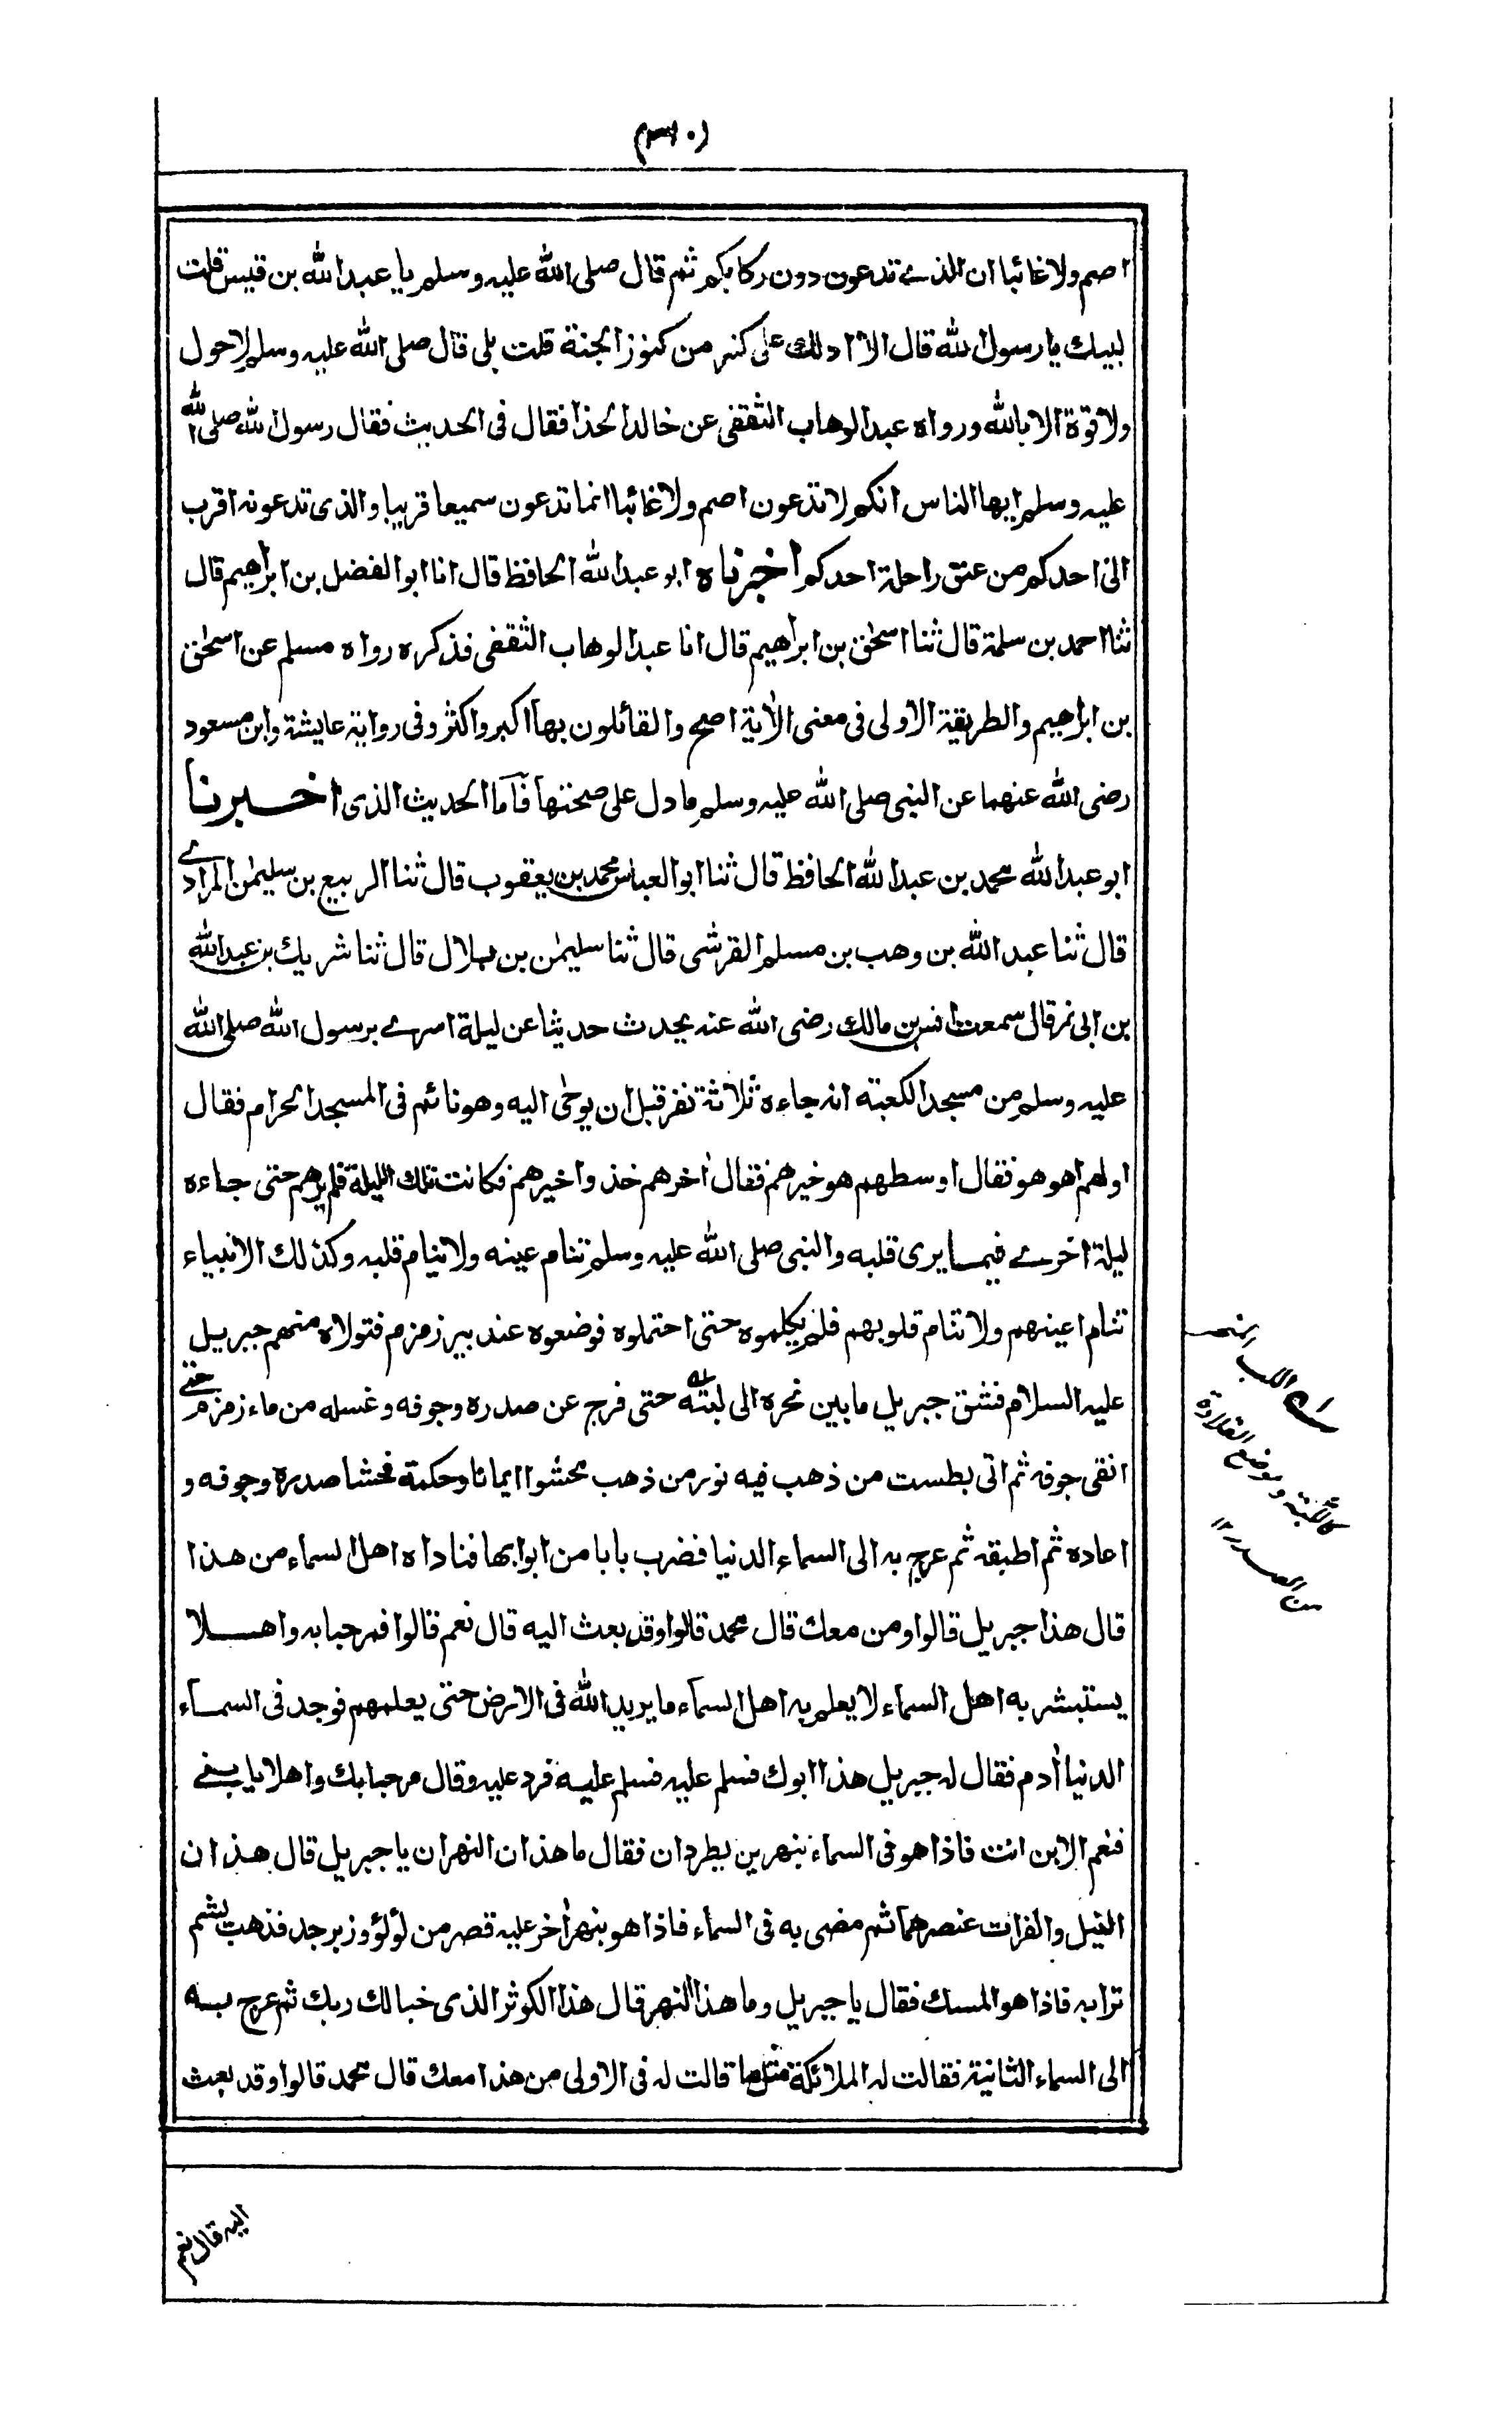 (٣١٠)
اصم ولا غائبا ان الذے تدعون دون ركابكم ثم قال صلى الله عليه وسلم يا عبد الله بن قيس قلت
لبيك يا رسول الله قال الا ادلك على كنز من كنوز الجنة قلت بلى قال صلى الله عليه وسلم لا حول
ولا قوة الا بالله ورواه عبد الوهاب الثقفى عن خالد الحذا فقال فى الحديث فقال رسول الله صلى الله
عليه وسلم ايها الناس انكم لا تدعون اصم ولا غائبا انما تدعون سميعا قريبا والذى تدعونه اقرب
الى احدكم من عنق راحلة احدكم اخبرناه ابو عبد الله الحافظ قال انا ابو الفضل بن ابراهيم قال
ثنا احمد بن سلمة قال ثنا اسحٰق بن ابراهيم قال انا عبد الوهاب الثقفى فذكره رواه مسلم عن اسحٰق
بن ابراهيم والطريقة الاولى فى معنى الاٰية اصح والقائلون بها اكبر واكثر وفى رواية عايشة وابن مسعود
رضى الله عنهما عن النبى صلى الله عليه وسلم ما دل على صحتها فاما الحديث الذى اخبرنا
ابو عبد الله محمد بن عبد الله الحافظ قال ثنا ابو العباس محمد بن يعقوب قال ثنا الربيع بن سليمٰن المرادے
قال ثنا عبد الله بن وهب بن مسلم القرشى قال ثنا سليمٰن بن بلال قال ثنا شريك بن عبد الله
بن ابى نمر قال سمعت انس بن مالك رضى الله عنه يحدث حديثا عن ليلة اسرے برسول الله صلى الله
عليه وسلم من مسجد الكعبة انه جاءه ثلاثة نفر قبل ان يوحٰى اليه وهو نائم فى المسجد الحرام فقال
اولهم اهو هو فقال اوسطهم هو خيرهم فقال اٰخرهم خذوا خيرهم فكانت تلك الليلة فلم يرهم حتى جاءه
ليلة اخرے فيما يرى قلبه والنبى صلى الله عليه وسلم تنام عينه ولا ينام قلبه وكذلك الانبياء
تنام اعينهم ولا تنام قلوبهم فلم يكلموه حتى احتملوه فوضعوه عند بير زمزم فتولاه منهم جبريل
عليه السلام فشق جبريل ما بين نحره الى لبته حتى فرج عن صدره وجوفه وغسله من ماء زمزم حتے
انقى جوفه ثم اتى بطست من ذهب فيه نور من ذهب محشوا ايمانا وحكمة فحشا صدره وجوفه و
اعاده ثم اطبقه ثم عرج به الى السماء الدنيا فضرب بابا من ابوابها فناداه اهل السماء من هذا
قال هذا جبريل قالوا ومن معك قال محمد قالوا وقد بعث اليه قال نعم قالوا فمرحبا به واهلا
يستبشر به اهل السماء لا يعلم به اهل السماء ما يريد الله فى الارض حتى يعلمهم فوجد فى السماء
الدنيا اٰدم فقال له جبريل هذا ابوك فسلم عليه فسلم عليه فرد عليه وقال مرحبا بك واهلا يا بنے
فنعم الابن انت فاذا هو فى السماء بنهرين يطردان فقال ما هذان النهران يا جبريل قال هذان
النيل والفرات عنصرهما ثم مضى به فى السماء فاذا هو بنهر اٰخر عليه قصر من لؤلؤ وزبرجد فذهب يشم
ترابه فاذا هو المسك فقال يا جبريل وما هذا النهر قال هذا الكوثر الذى خبالك ربك ثم عرج به
الى السماء الثانية فقالت له الملائكة مثل ما قالت له فى الاولى من هذا معك قال محمد قالوا وقد بعث
اللبب
كاللبة وموضع القلادة
من الصدر ١٢
اليه قال نعم